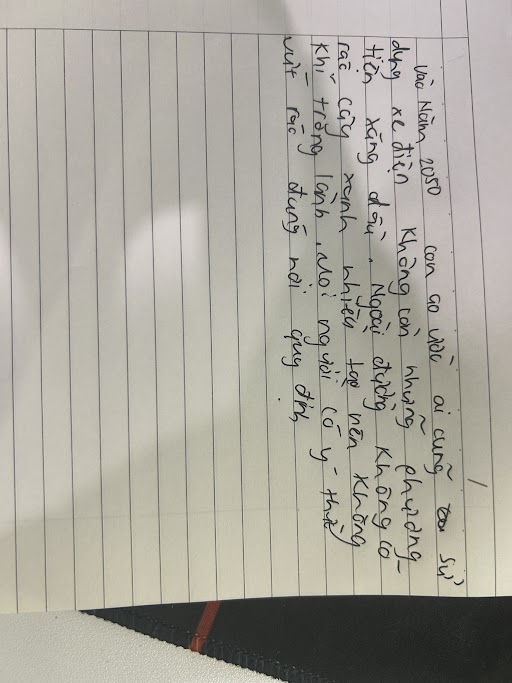 vào Năm 2050 con ao ước ai cũng sử
dụng xe điện không còn những phương-
tiện xăng dầu. Ngoài đường không có
rác cây xanh nhiều tạo nên không
khí trong lành. Mọi người có ý thức
vứt rác đúng nơi quy định.